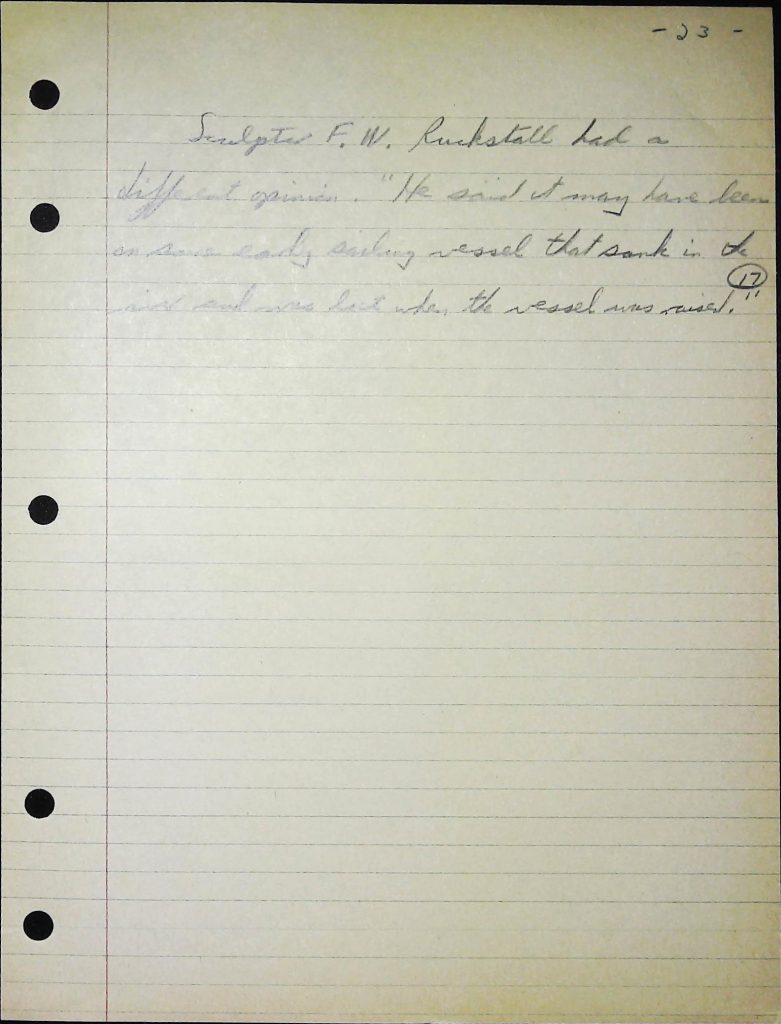 - 23 -
Sculptor F. W. Ruckstall had a
different opinion. "He said it may have been
on some early sailing vessel that sank in the
river and was lost when the vessel was raised."
17